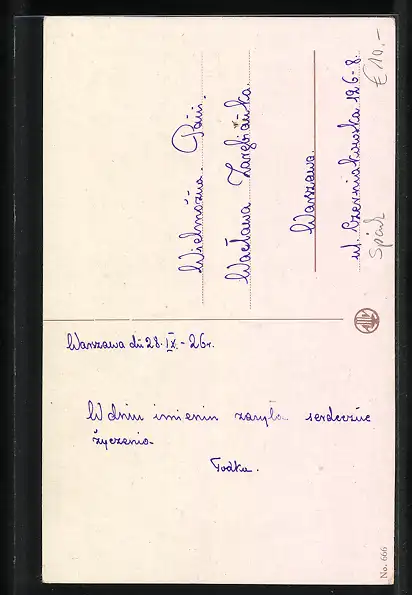 Warszawa dń 28. IX. - 26 r.
W dniu imienin zasyła serdeczne
życzenia.
Wielmożna Pani.
Wacława
Warszawa.
ul. Czerniakowska 126-8.
€ 10.-
No. 666